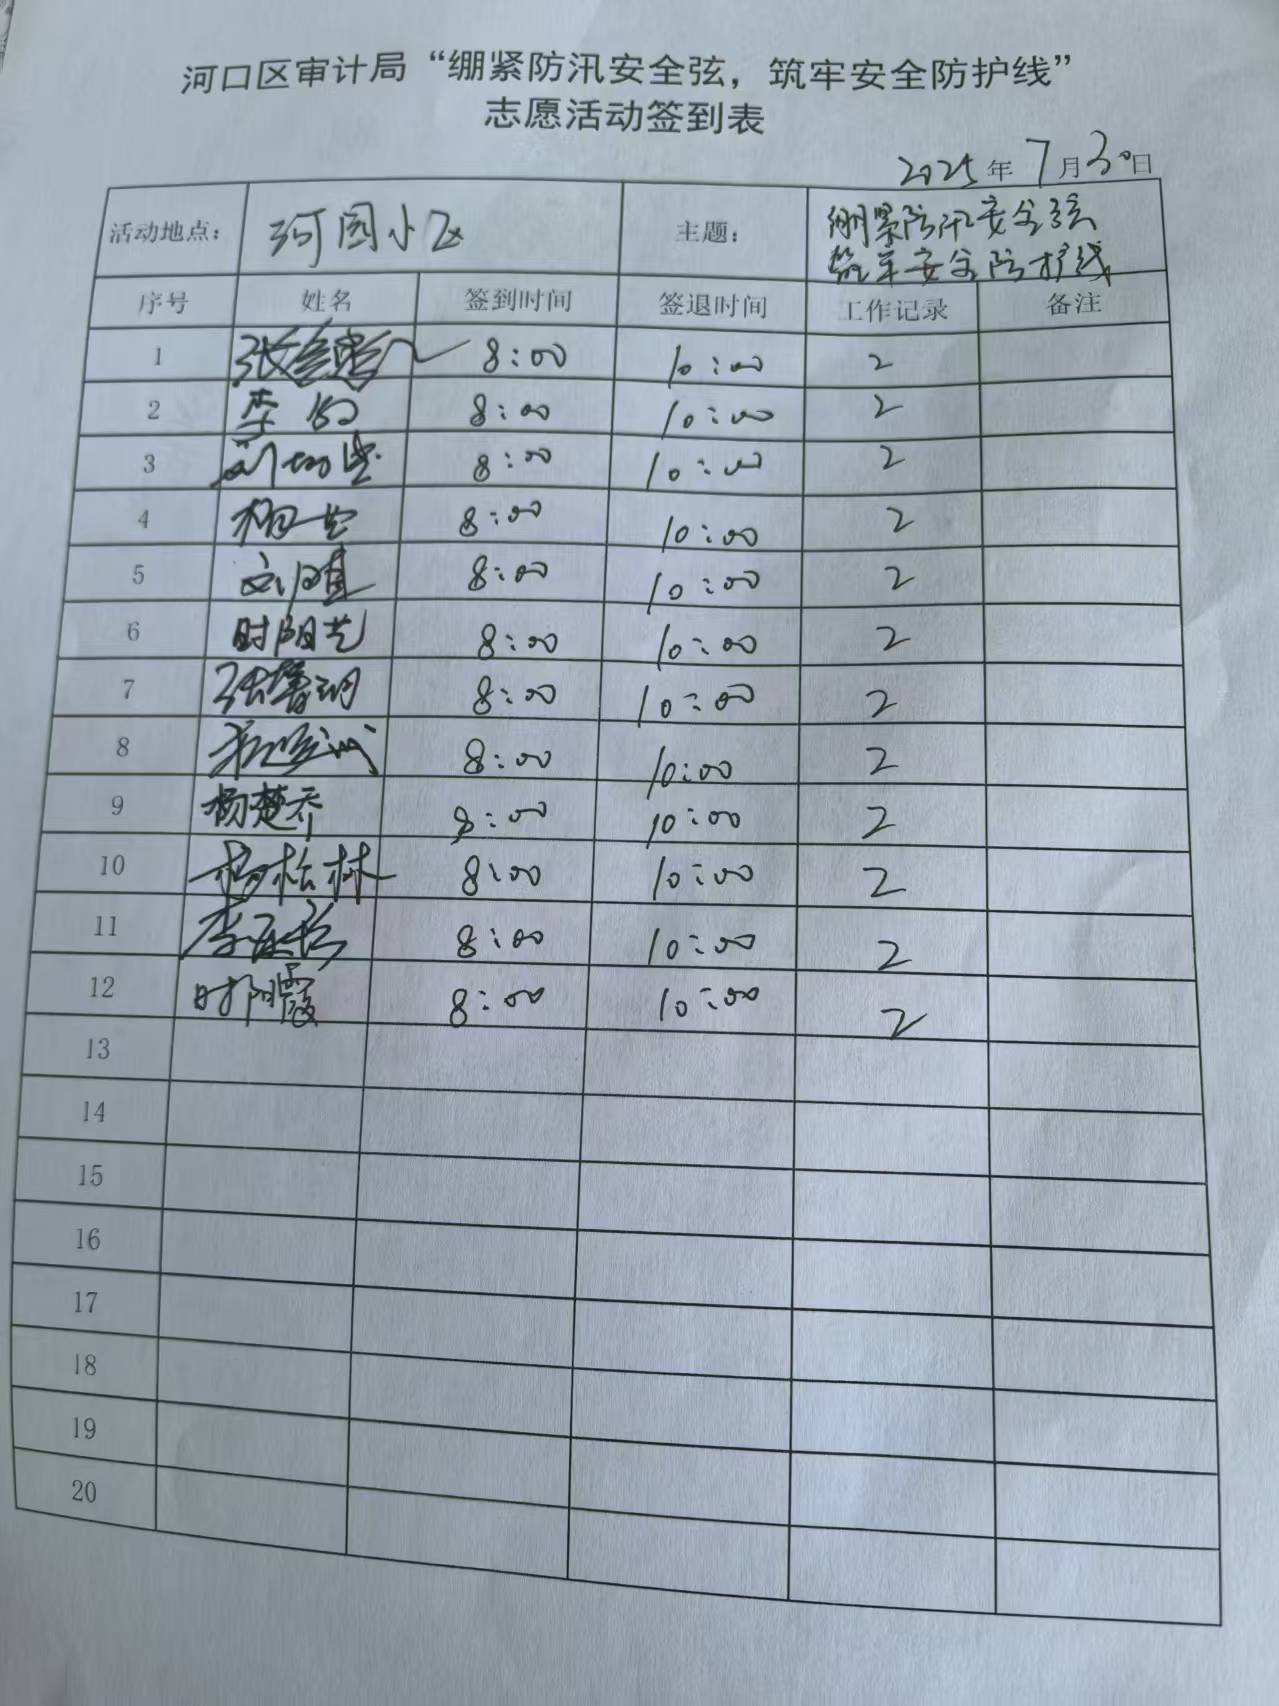 河口区审计局“绷紧防汛安全弦，筑牢安全防护线”
志愿活动签到表
2025年7月30日
活动地点： 河园小区 主题： 绷紧防汛安全弦
筑牢安全防护线
序号 姓名 签到时间 签退时间 工作记录 备注
1 8:00 10:00 2
2 李 8:00 10:00 2
3 8:00 10:00 2
4 杨 8:00 10:00 2
5 8:00 10:00 2
6 时阳艺 8:00 10:00 2
7 张 8:00 10:00 2
8 8:00 10:00 2
9 杨楚乔 8:00 10:00 2
10 杨松林 8:00 10:00 2
11 李 8:00 10:00 2
12 时阳霞 8:00 10:00 2
13
14
15
16
17
18
19
20